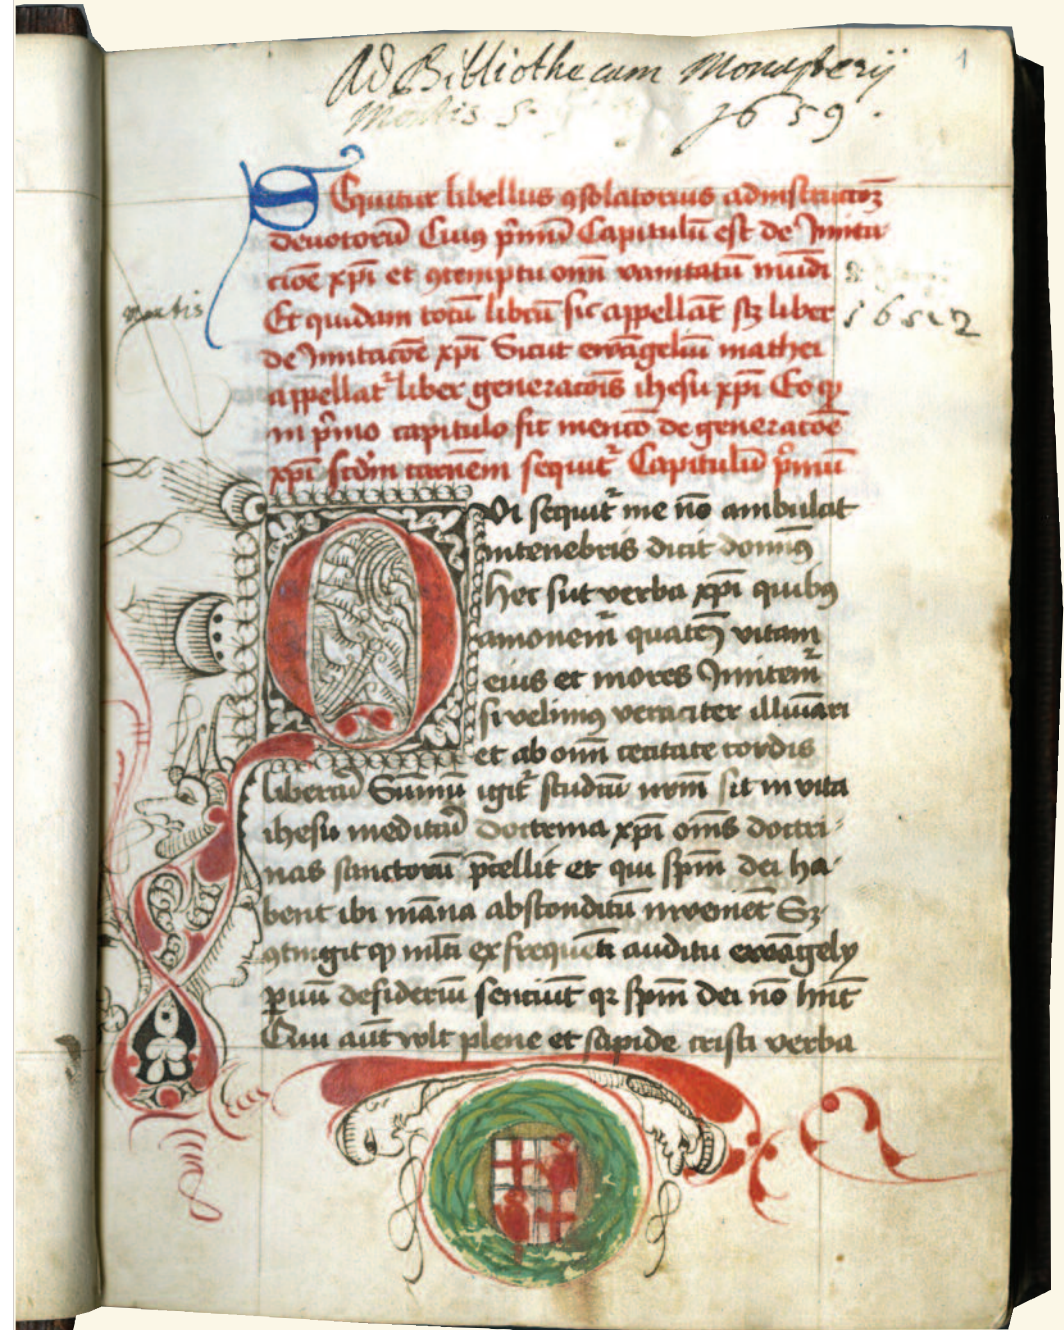 Ad Bibliothecam Monasterij
Montis S.
1659.
1
Sequitur libellus ꝯsolatorius ad instructōꝫ
deuotorū Cuiꝰ pͥmū Capitulū est de Imita
cōe xp̄i et ꝯtemptu om̄i vanitatū mūdi
Et quidam totū librū sic appellāt sꝫ liber
de Imitacōe xp̄i Sicut ewāgeliū mathei
appellat᷑ liber generacōis ihesu xp̄i Eo ꝙ
in pͥmo capitulo fit mencō de generacōe
xp̄i scd̄m carnem sequit᷑ Capitulū pͥmū
Qvi sequit᷑ me nō ambulat
in tenebris dicit dominꝰ
Hec sūt verba xp̄i quibꝰ
amonem᷑ quatēꝰ vitam
eius et mores Imitem᷑
si velimꝰ veraciter illūiari
et ab om̄i cecitate cordis
liberari Sūmū igit᷑ studiū nr̄m sit in vita
ihesu meditari doctrina xp̄i om̄s doctri-
nas sanctorū p̄cellit et qui sp̄m dei ha-
bent ibi māna absconditū inveniēt Sꝫ
ꝯtingit ꝙ ml̄ti ex frequēti auditu ewāgely
ꝑuū desideriū sentiūt qꝛ sp̄m dei nō hn̄t
Qui aūt vult plene et sapide cristi verba